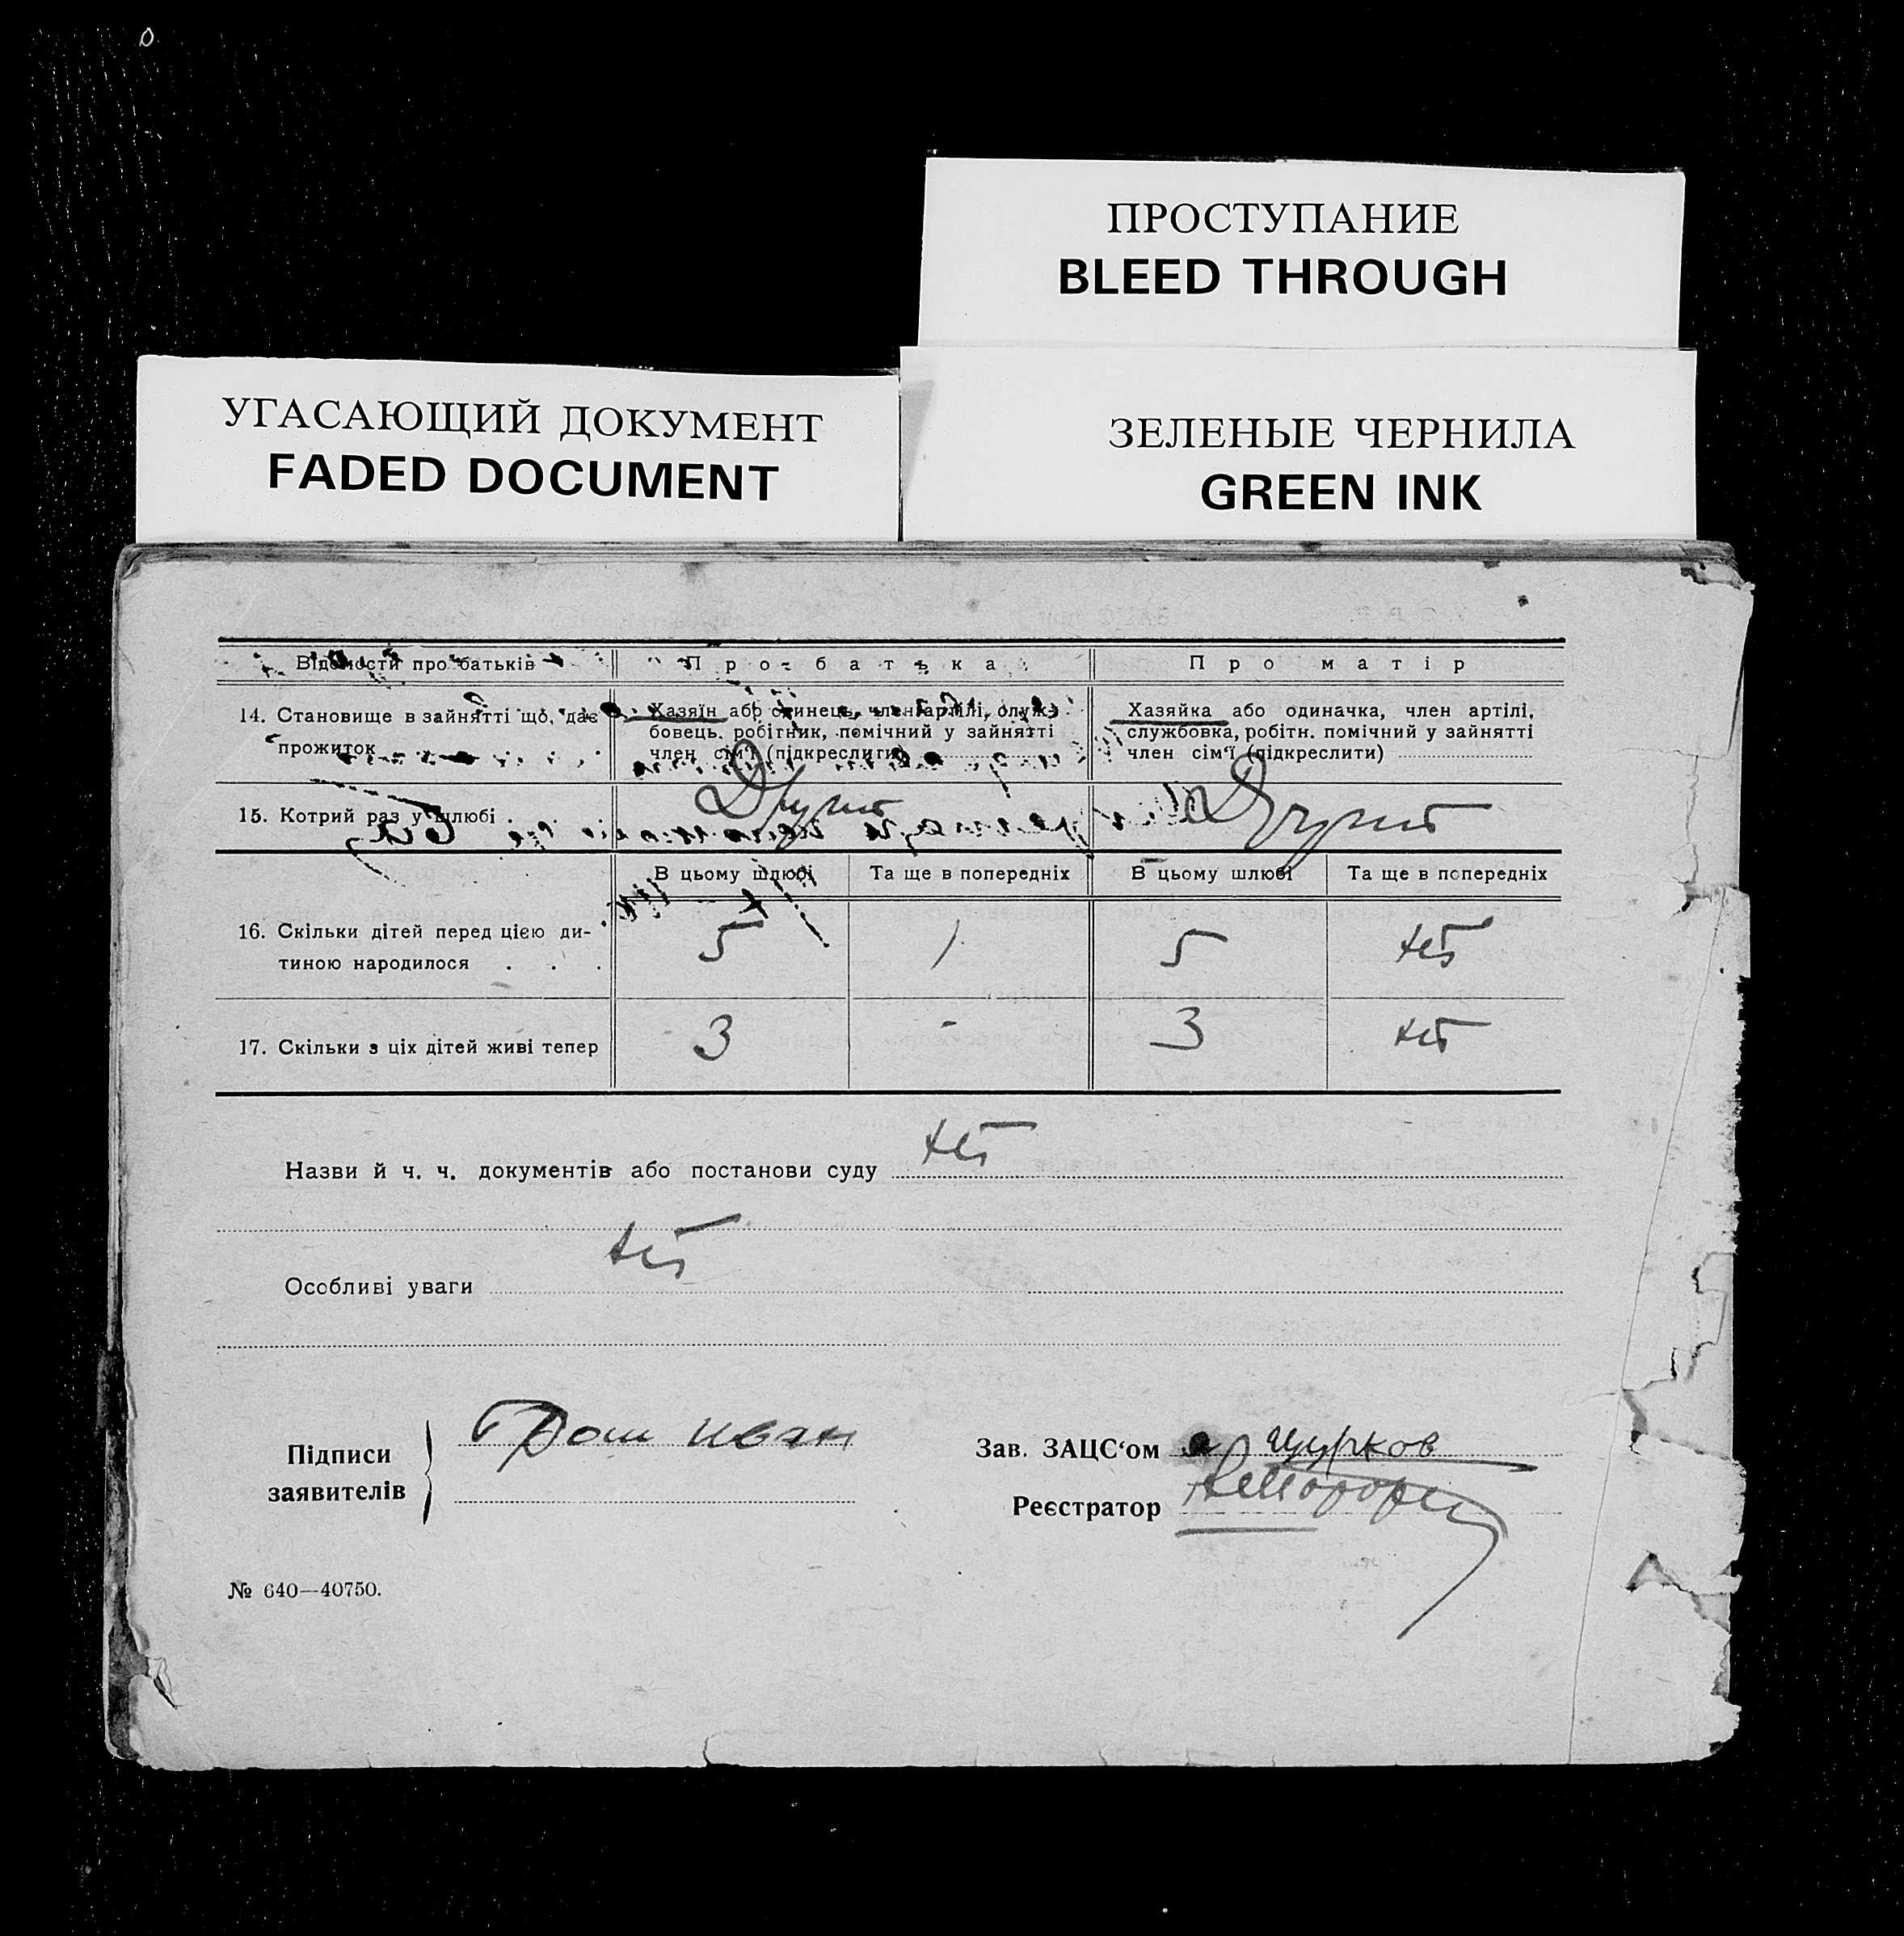 ПРОСТУПАНИЕ
BLEED THROUGH
УГАСАЮЩИЙ ДОКУМЕНТ
FADED DOCUMENT
ЗЕЛЕНЫЕ ЧЕРНИЛА
GREEN INK
Відомости про батьків Про батька Про матір
14. Становище в зайнятті що, дає прожиток
Хазяїн або одинець, член артілі, служ-
бовець, робітник, помічний у зайнятті
член сім'ї (підкреслити)
Хазяйка або одиначка, член артілі,
службовка, робітн. помічний у зайнятті
член сім'ї (підкреслити)
15. Котрий раз у шлюбі
В цьому шлюбі Та ще в попередніх В цьому шлюбі Та ще в попередніх
16. Скільки дітей перед цією ди-
тиною народилося . . . 5 1 5 нет
17. Скільки з ціх дітей живі тепер 3 - 3 нет
Назви й ч. ч. документів або постанови суду нет
Особливі уваги нет
Підписи
заявителів
Иван
Зав. ЗАЦС'ом
Реєстратор
№ 640—40750.